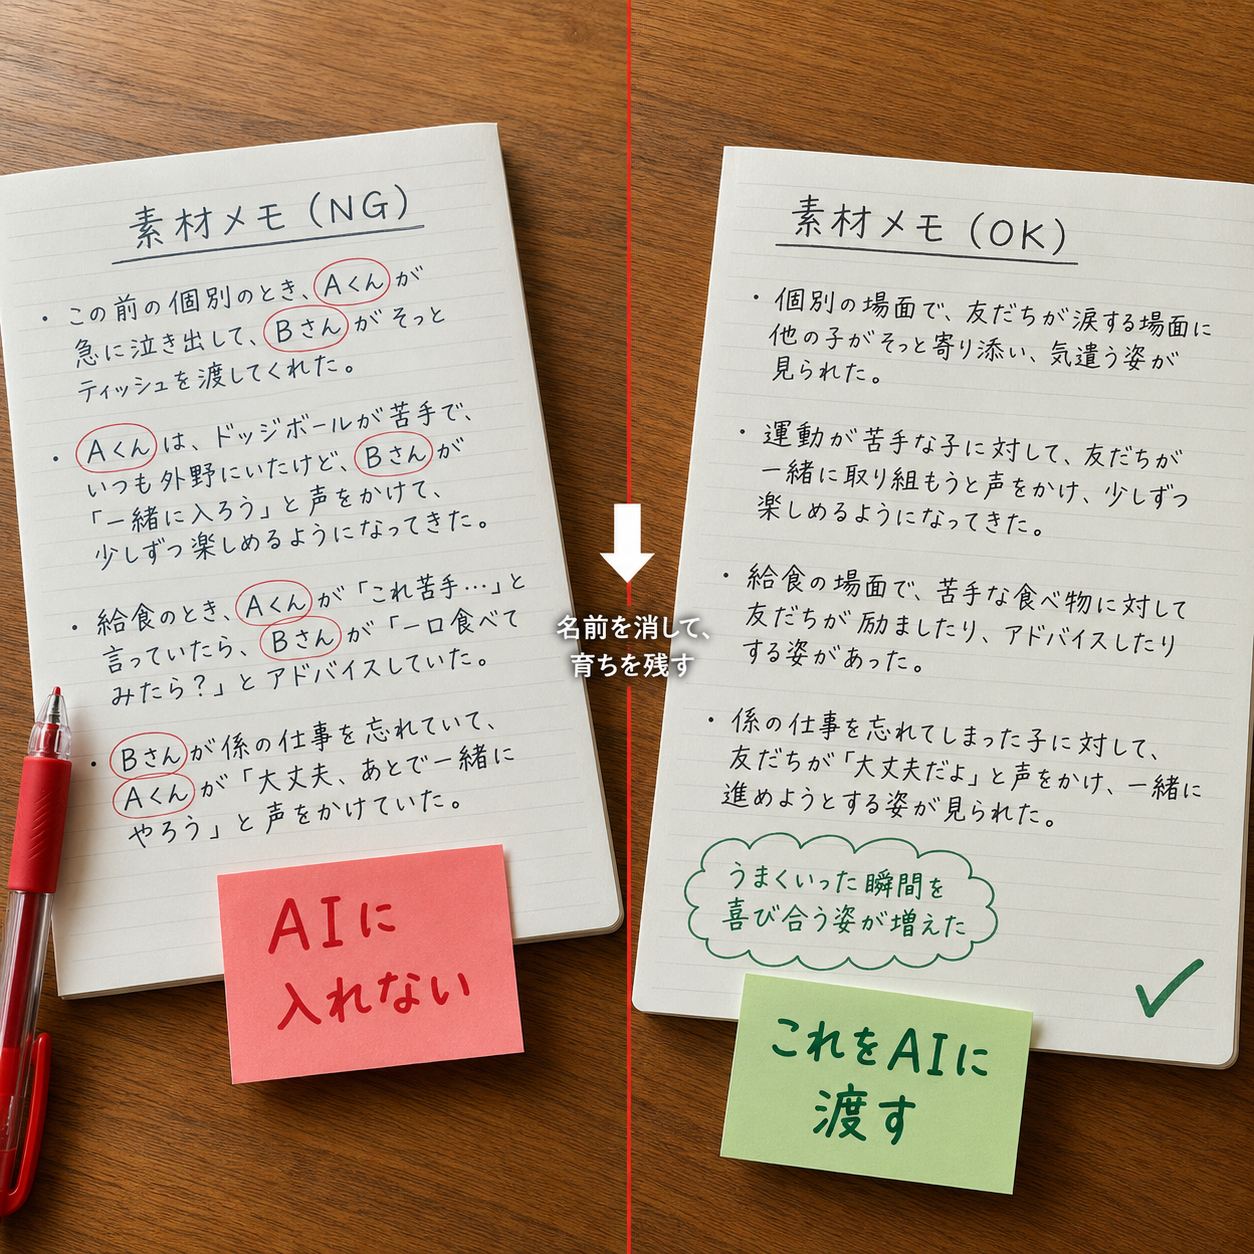 素材メモ（NG）
・この前の個別のとき、Aくんが
急に泣き出して、Bさんがそっと
ティッシュを渡してくれた。
・Aくんは、ドッジボールが苦手で、
いつも外野にいたけど、Bさんが
「一緒に入ろう」と声をかけて、
少しずつ楽しめるようになってきた。
・給食のとき、Aくんが「これ苦手…」と
言っていたら、Bさんが「一口食べて
みたら？」とアドバイスしていた。
・Bさんが係の仕事を忘れていて、
Aくんが「大丈夫、あとで一緒に
やろう」と声をかけていた。
AIに
入れない
名前を消して、
育ちを残す
素材メモ（OK）
・個別の場面で、友だちが涙する場面に
他の子がそっと寄り添い、気遣う姿が
見られた。
・運動が苦手な子に対して、友だちが
一緒に取り組もうと声をかけ、少しずつ
楽しめるようになってきた。
・給食の場面で、苦手な食べ物に対して
友だちが励ましたり、アドバイスしたり
する姿があった。
・係の仕事を忘れてしまった子に対して、
友だちが「大丈夫だよ」と声をかけ、一緒に
進めようとする姿が見られた。
うまくいった瞬間を
喜び合う姿が増えた
これをAIに
渡す